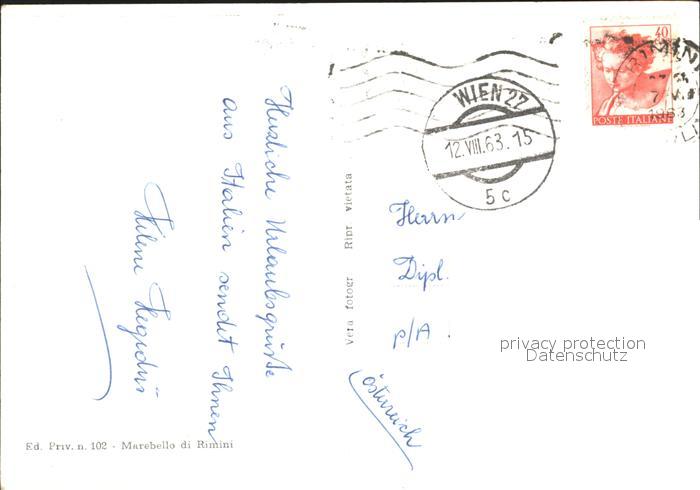 Herzliche Urlaubsgrüße
aus Italien sendet Ihnen
Helene
Ed. Priv. n. 102 - Marebello di Rimini
Vera fotogr Ripr vietata
WIEN 27
12.VIII.63.15
5 c
40
POSTE ITALIANE
1963
Herrn
Dipl.
p/A.
Österreich
privacy protection
Datenschutz